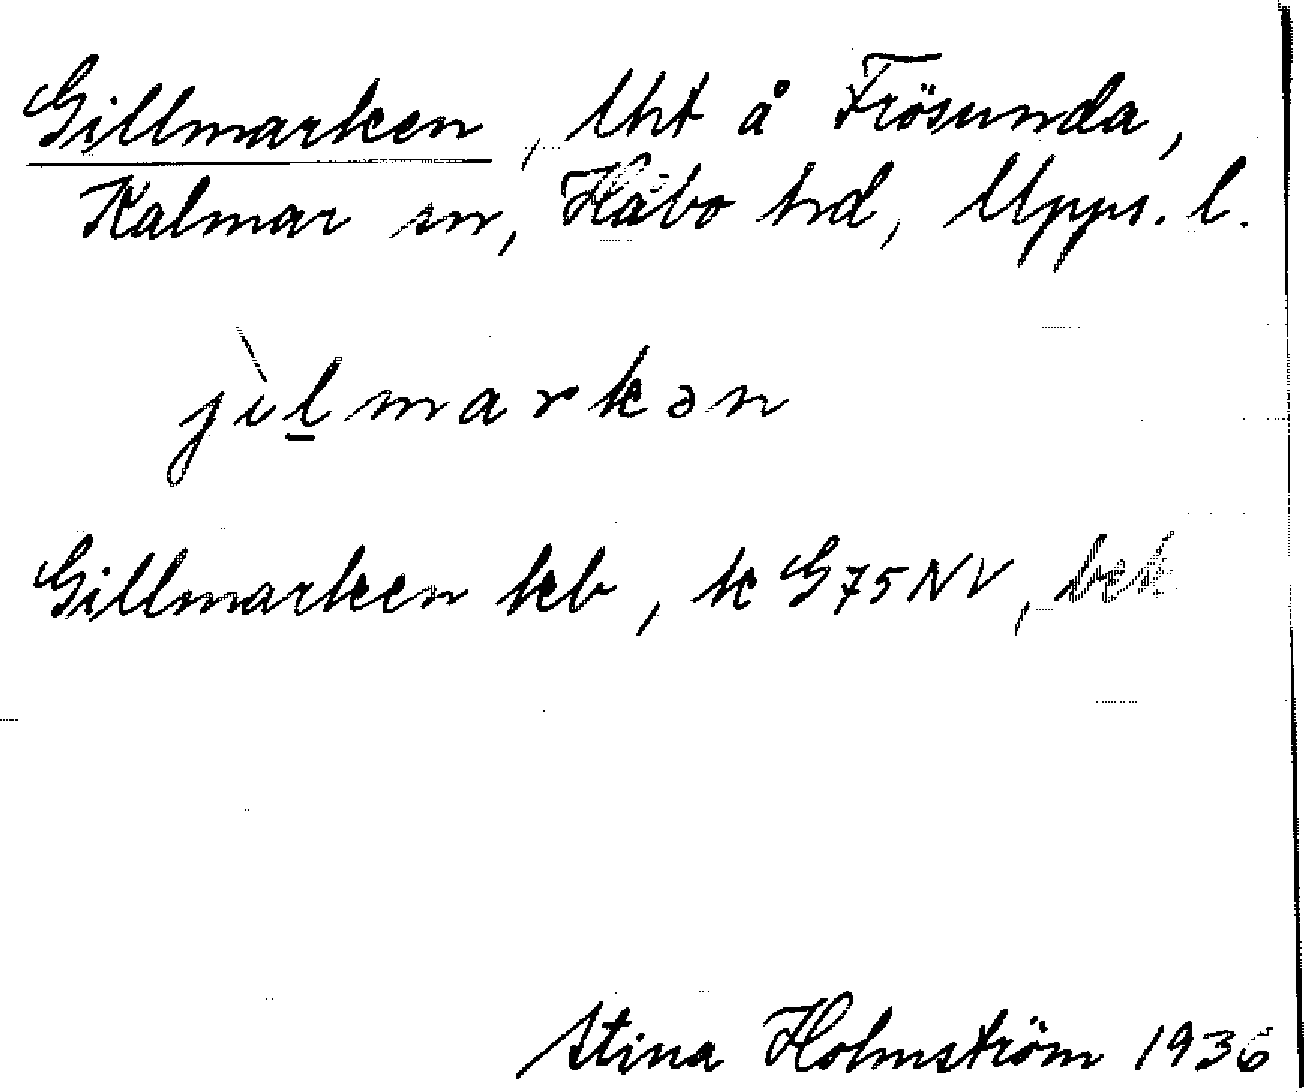 Gillmarken, Uht å Frösunda,
Kalmar sn, Håbo hd, Upps. l.
jìl̲markən
Gillmarken kb, k G75NV, bek
Stina Holmström 1936